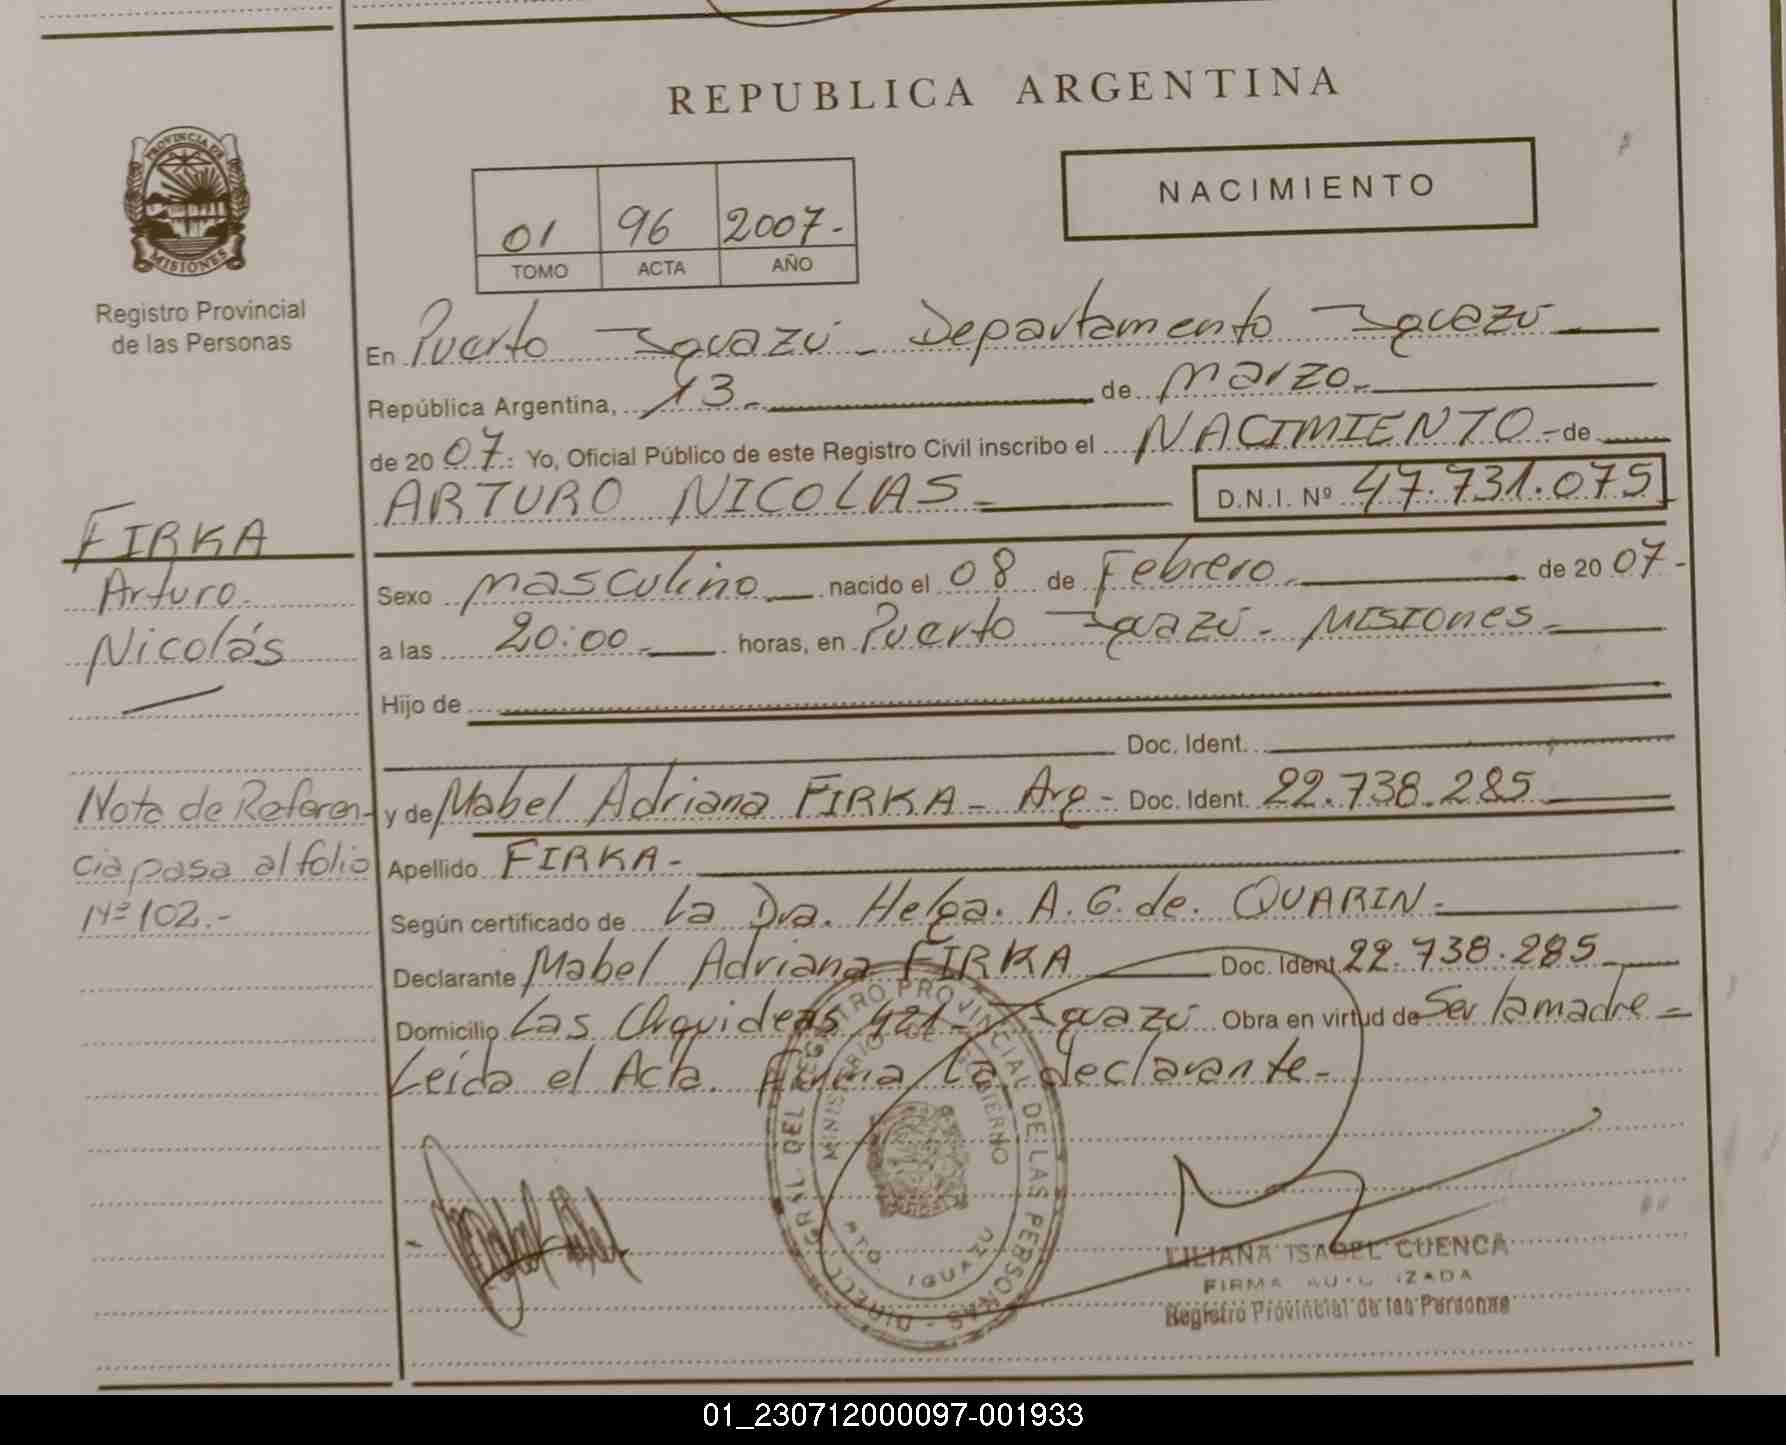 REPUBLICA ARGENTINA
PROVINCIA DE
MISIONES
Registro Provincial
de las Personas
NACIMIENTO
01 96 2007.-
TOMO ACTA AÑO
En Puerto Iguazú - Departamento Iguazú
República Argentina, 13.- de marzo.-
de 20 07. Yo, Oficial Público de este Registro Civil inscribo el NACIMIENTO - de
ARTURO NICOLAS - D.N.I. Nº 47.731.075
FIRKA
Arturo
Nicolás
Sexo masculino nacido el 08 de Febrero de 20 07-
a las 20:00 horas, en Puerto Iguazú - MISIONES -
Hijo de
Doc. Ident.
y de Mabel Adriana FIRKA - Arg - Doc. Ident. 22.738.285
Apellido FIRKA -
Según certificado de la Dra. Helga. A. G. de. QUARIN -
Declarante Mabel Adriana FIRKA Doc. Ident. 22.738.285
Domicilio Las Orquideas 421 - Iguazú Obra en virtud de Ser la madre -
Leída el Acta. Firma la declarante -
Nota de Referen-
cia pasa al folio
Nº 102.-
DIREC. GRAL. DEL REGISTRO PROVINCIAL DE LAS PERSONAS
MINISTERIO DE GOBIERNO
PTO. IGUAZU
LILIANA ISABEL CUENCA
FIRMA AUTORIZADA
Registro Provincial de las Personas
01_230712000097-001933